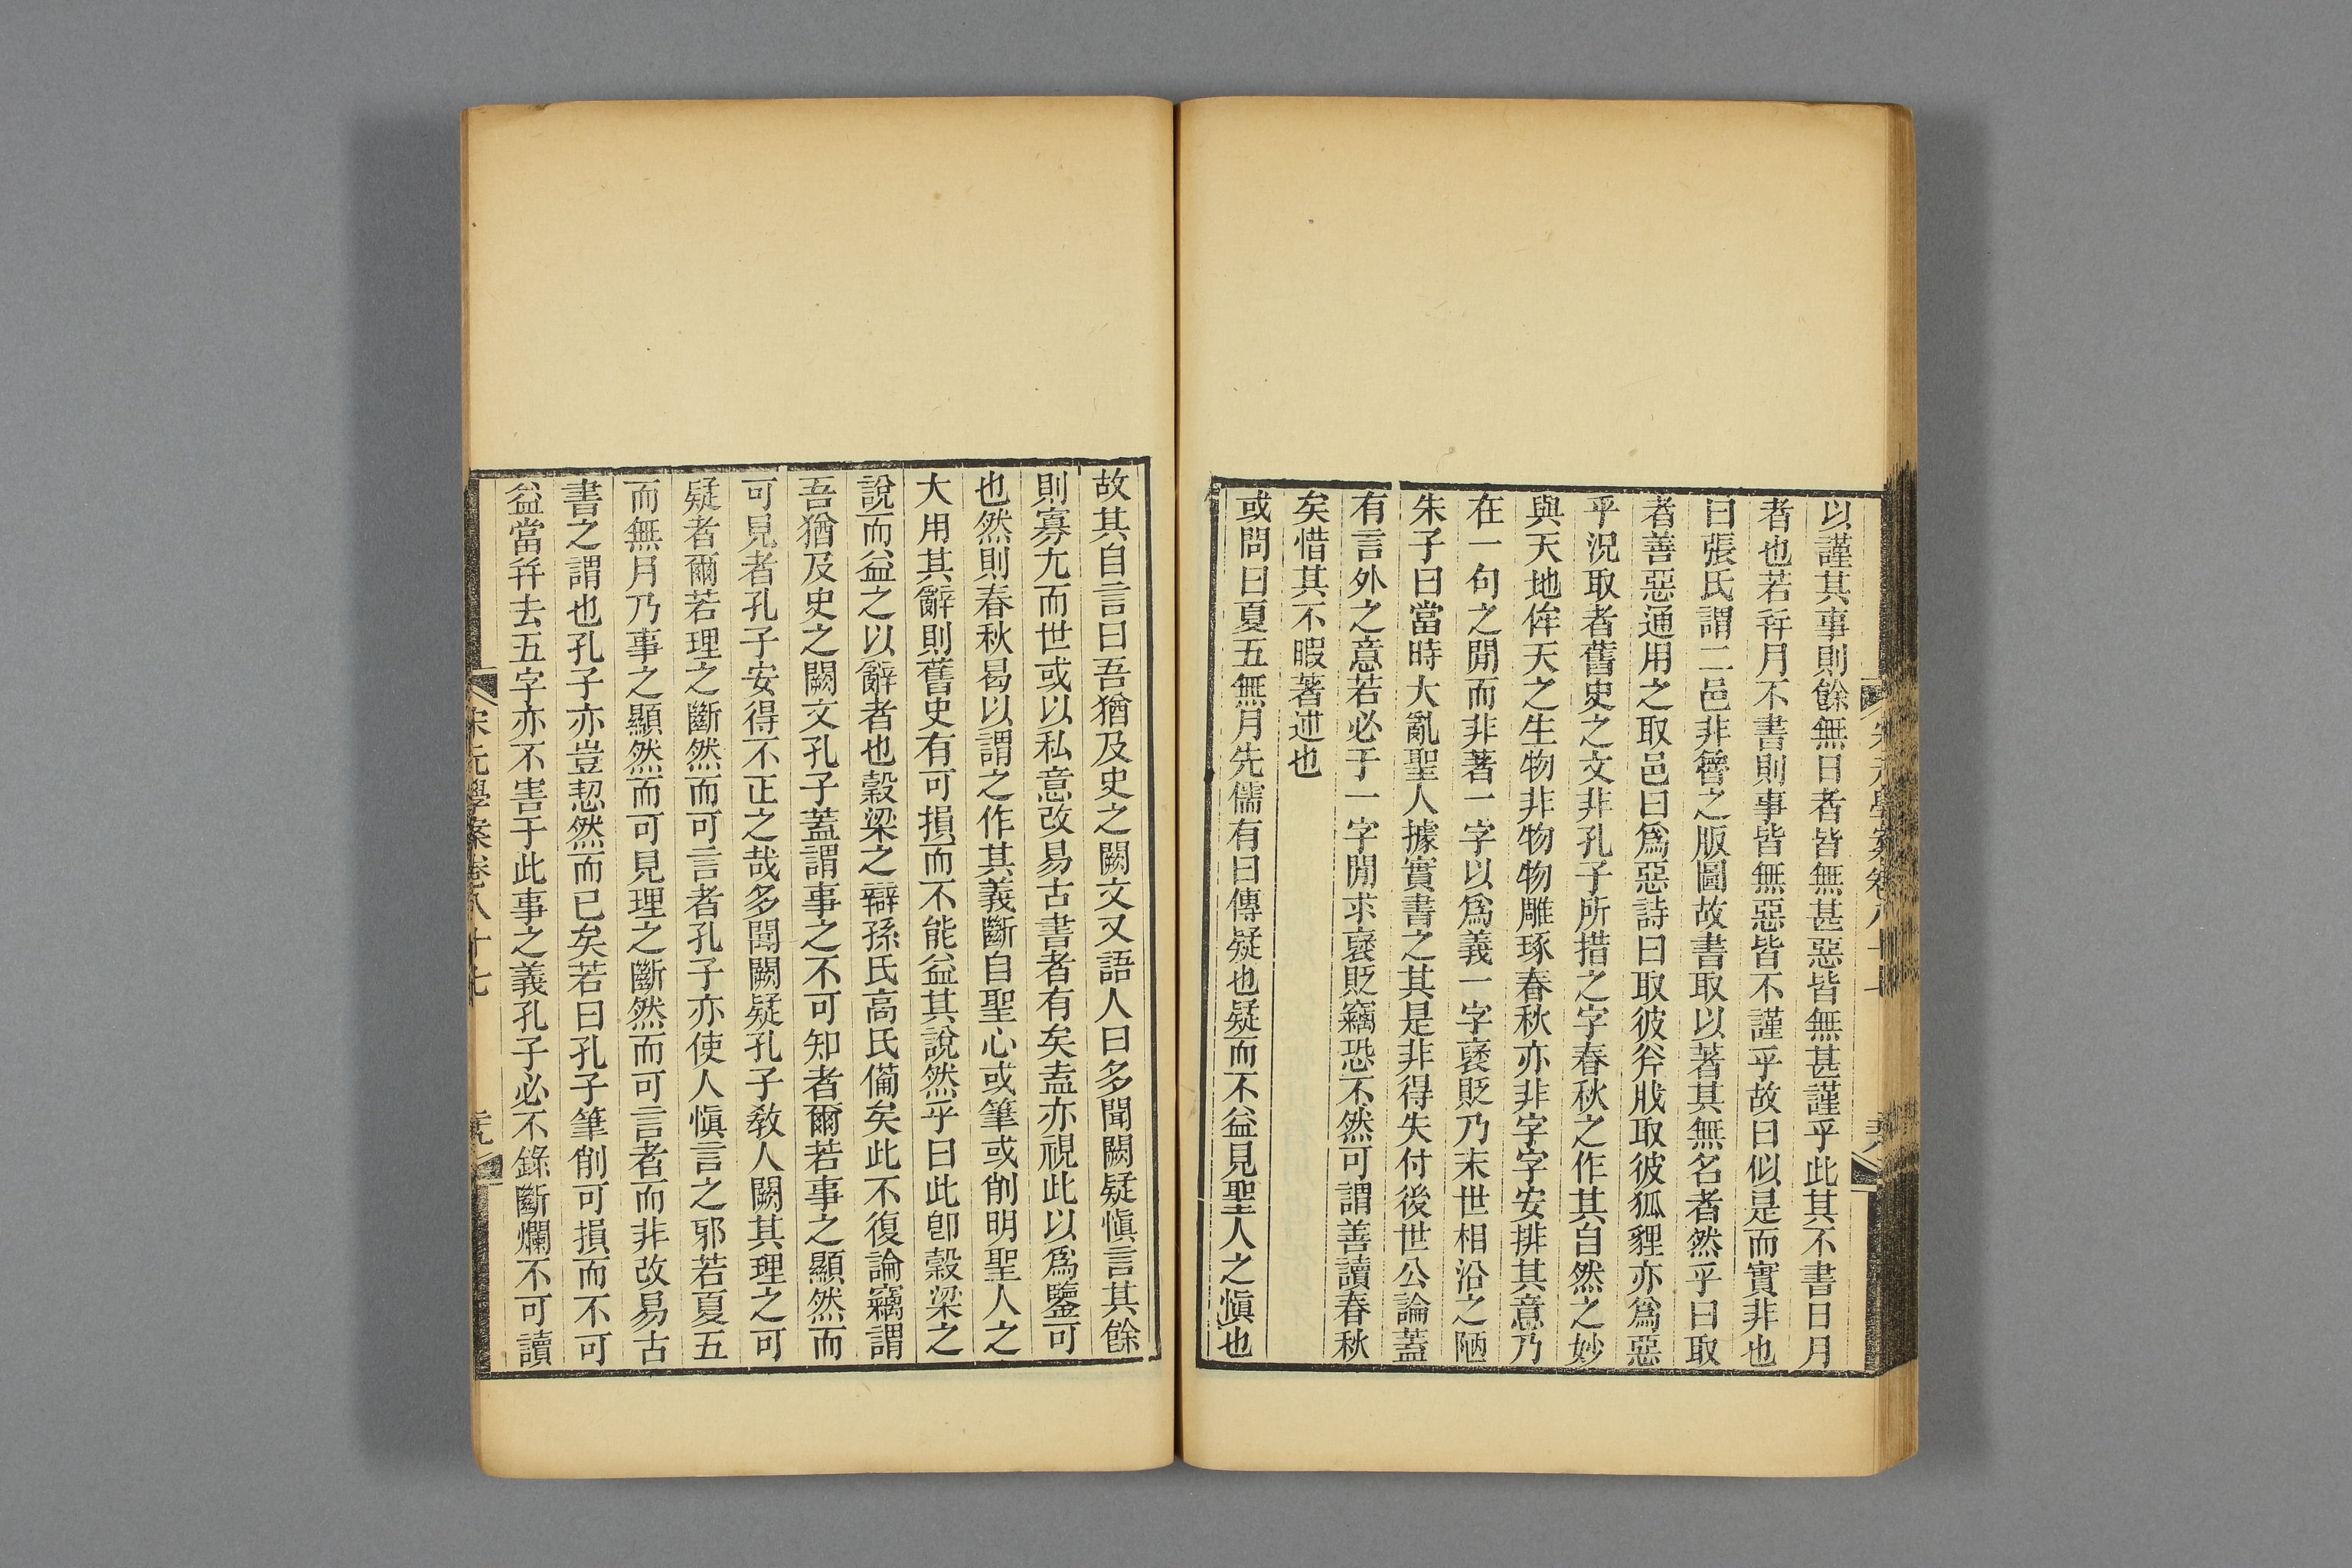 以謹其事則餘無日者皆無甚惡皆無甚謹乎此其不書日月
者也若幷月不書則事皆無惡皆不謹乎故曰似是而實非也
曰張氏謂二邑非簪之版圖故書取以著其無名者然乎曰取
者善惡通用之取邑曰爲惡詩曰取彼斧戕取彼狐貍亦爲惡
乎況取者舊史之文非孔子所措之字春秋之作其自然之妙
與天地侔天之生物非物物雕琢春秋亦非字字安排其意乃
在一句之閒而非著一字以爲義一字襃貶乃末世相沿之陋
朱子曰當時大亂聖人據實書之其是非得失付後世公論蓋
有言外之意若必于一字閒求襃貶竊恐不然可謂善讀春秋
矣惜其不暇著述也
或問曰夏五無月先儒有曰傳疑也疑而不益見聖人之愼也
故其自言曰吾猶及史之闕文又語人曰多聞闕疑愼言其餘
則寡尤而世或以私意改易古書者有矣盍亦視此以爲鑒可
也然則春秋曷以謂之作其義斷自聖心或筆或削明聖人之
大用其辭則舊史有可損而不能益其說然乎曰此卽穀梁之
說而益之以辭者也穀梁之辯孫氏高氏備矣此不復論竊謂
吾猶及史之闕文孔子蓋謂事之不可知者爾若事之顯然而
可見者孔子安得不正之哉多聞闕疑孔子敎人闕其理之可
疑者爾若理之斷然而可言者孔子亦使人愼言之邪若夏五
而無月乃事之顯然而可見理之斷然而可言者而非改易古
書之謂也孔子亦豈恝然而已矣若曰孔子筆削可損而不可
益當幷去五字亦不害于此事之義孔子必不錄斷爛不可讀
宋元學案卷八十七